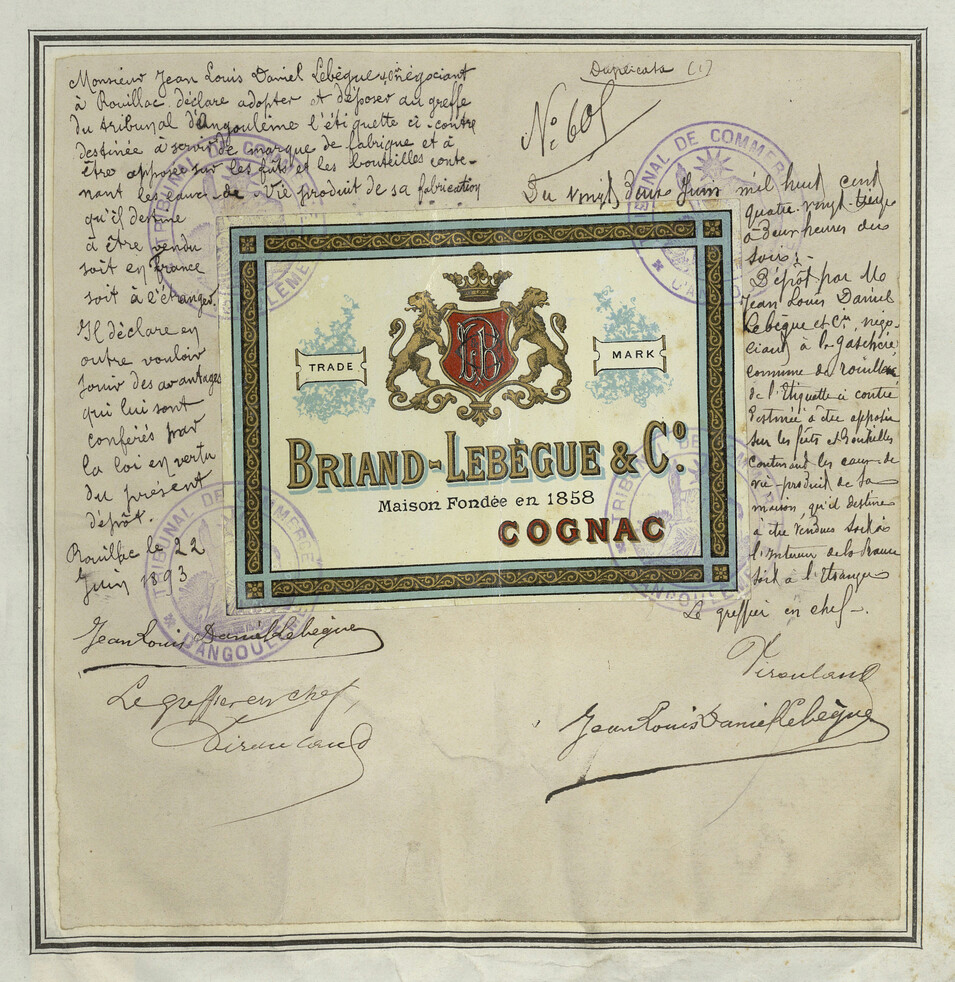 Monsieur Jean Louis Daniel Lebègue négociant
à Rouillac, déclare adopter et déposer au greffe
du tribunal d'Angoulême l'étiquette ci-contre
destinée à servir de marque de fabrique et à
être apposée sur les fûts et les bouteilles conte-
nant les eaux-de-vie produit de sa fabrication
qu'il destine
à être vendu
soit en France
soit à l'étranger.
Il déclare en
outre vouloir
jouir des avantages
qui lui sont
conférés par
la loi en vertu
du présent
dépôt.
Rouillac le 22
Juin 1893
Jean Louis Daniel Lebègue
Le greffier en chef,
Duplicata (1)
N° 605
Du vingt deux Juin mil huit cent
quatre vingt-treize
à deux heures du
soir;
Dépôt par Mr
Jean Louis Daniel
Lebègue et Cie, négo-
ciant à
commune de Rouillac
de l'Etiquette ci contre
destinée à être apposée
sur les fûts et bouteilles
contenant les eaux-de
vie produit de sa
maison, qu'il destine
à être vendues soit à
l'intérieur de la France
soit à l'étranger
Le greffier en chef.
Jean Louis Daniel Lebègue
TRADE
LB
MARK
BRIAND-LEBÈGUE & Co.
Maison Fondée en 1858
COGNAC
TRIBUNAL DE COMMERCE
D'ANGOULÊME
TRIBUNAL DE COMMERCE
D'ANGOULÊME
TRIBUNAL DE COMMERCE
D'ANGOULÊME
TRIBUNAL DE COMMERCE
D'ANGOULÊME